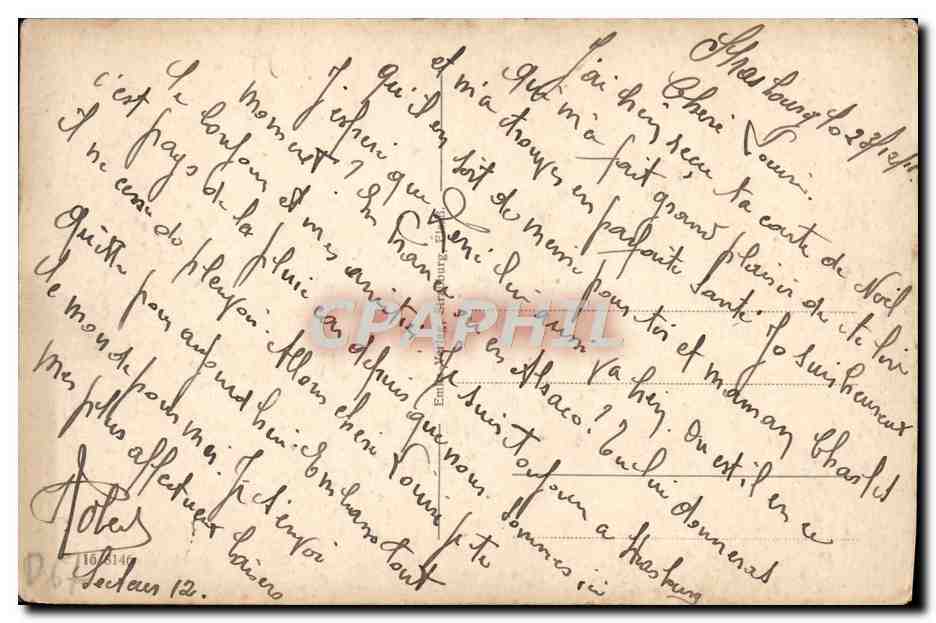 Strasbourg le 23/12/18.
Chère Louise.
J'ai bien reçu ta carte de Noël
qui m'a fait grand plaisir de te lire
et m'a trouvé en parfaite santé. Je suis heureux
qu'il en soit de même pour toi et maman Charles
J'espère que René lui aussi va bien. Où est il en ce
moment? En France ou en Alsace? Tu lui donneras
le bonjour et mes amitiés. Je suis toujours a Strasbourg
c'est pays de la pluie car depuis que nous sommes ici
il ne cesse de pleuvoir. Allons chère Louise je te
quitte pour aujourd'hui. Embrasse tout
le monde pour moi. Je t'envoi
mes plus affectueux baisers
Robert
Secteur 12.
16/8146
D67
CPAPHIL